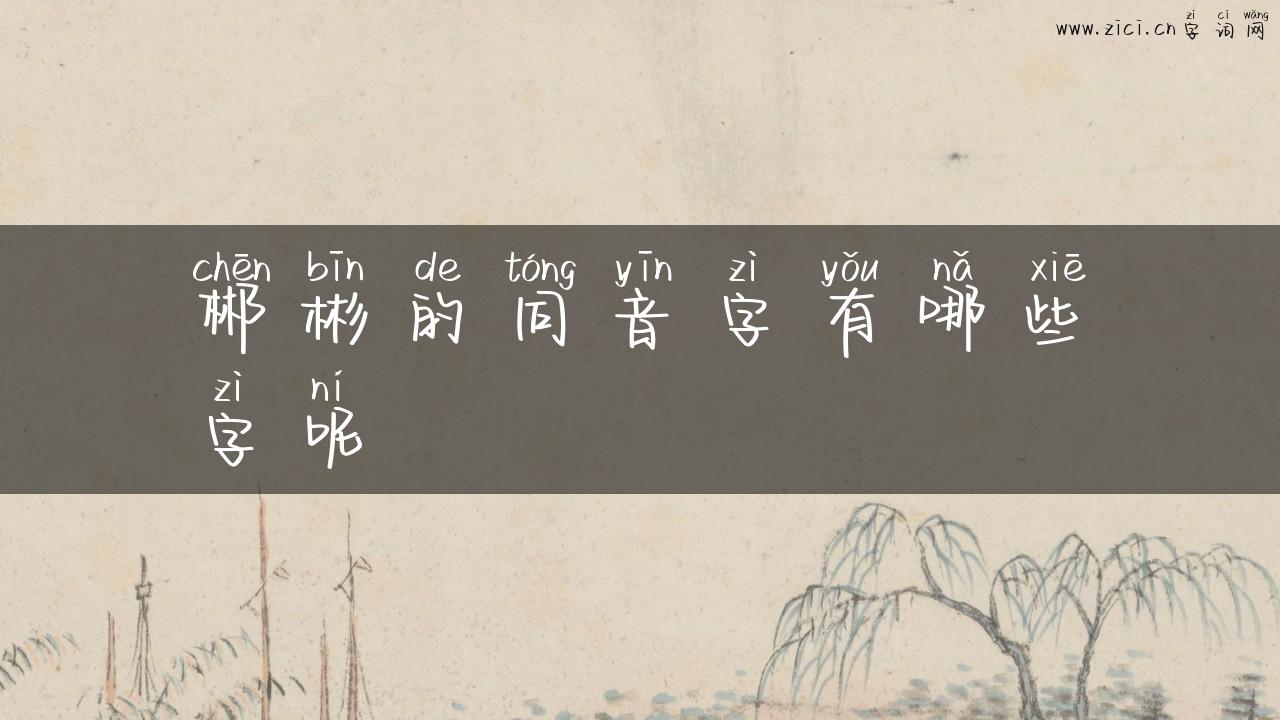 zì cí wǎng
www.zici.cn 字词网
chēn bīn de tóng yīn zì yǒu nǎ xiē
郴彬的同音字有哪些
zì ní
字呢